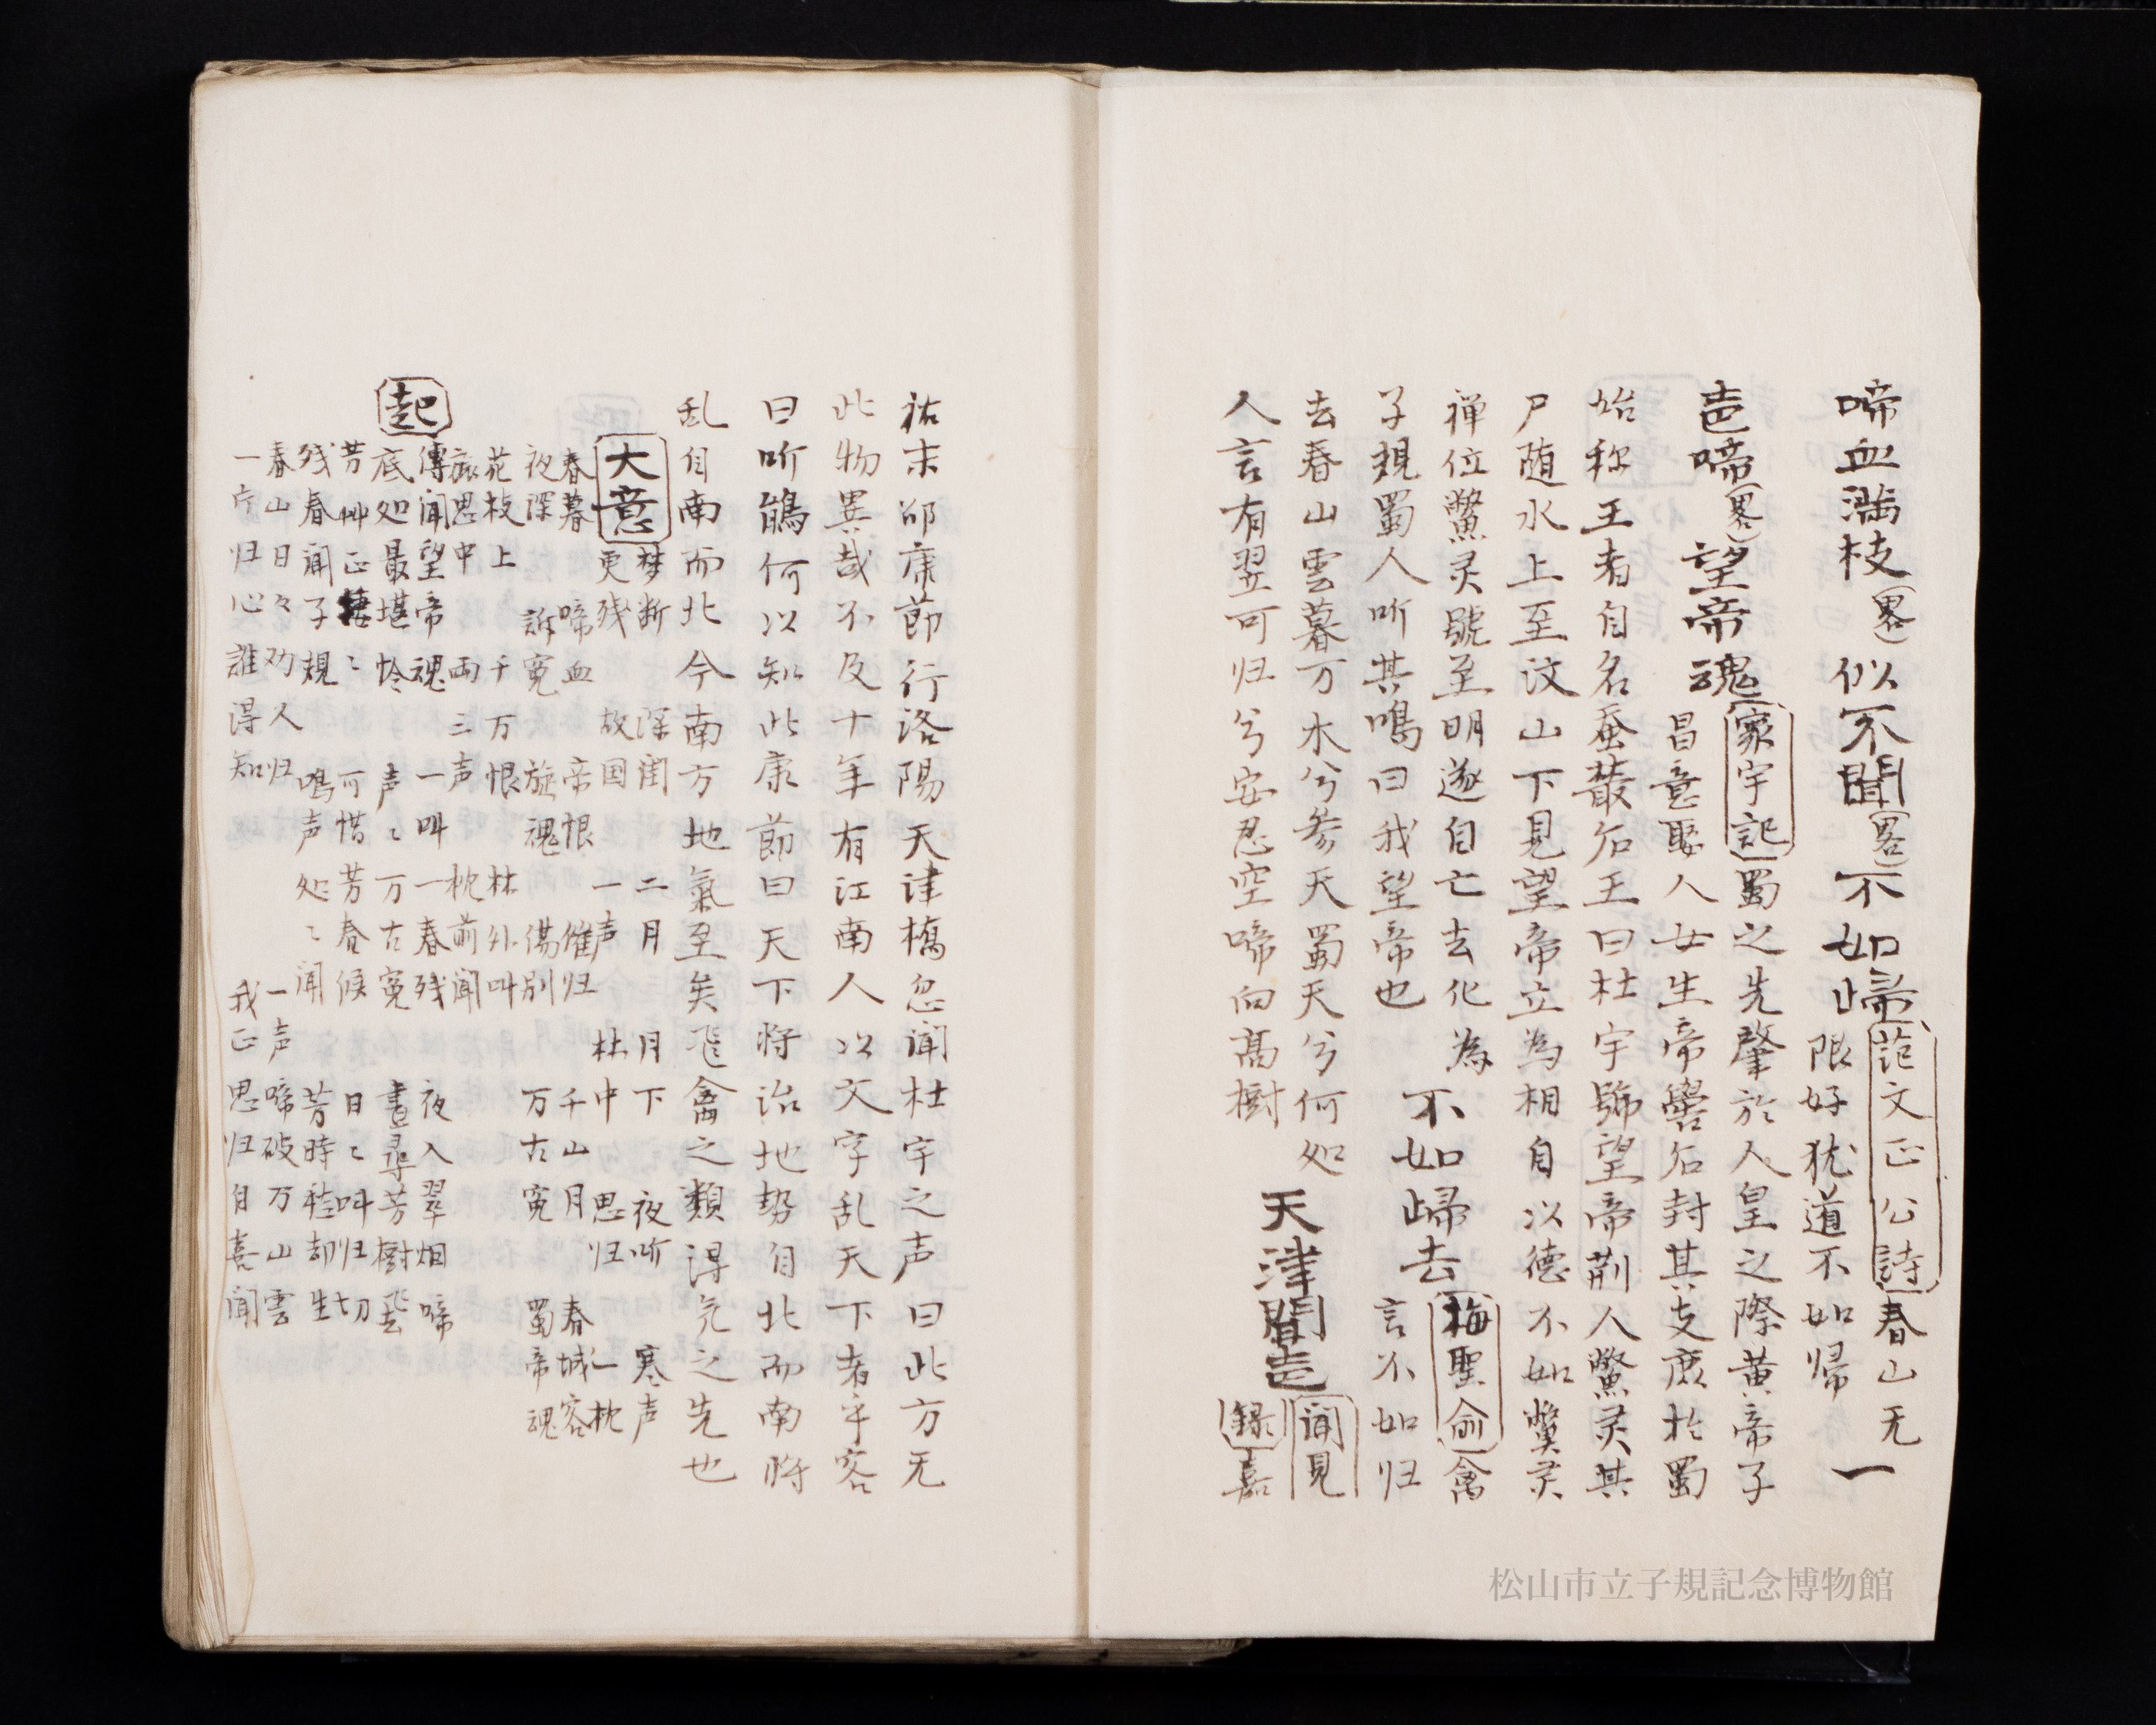 啼血満枝(畧)似不聞(畧)不如帰 范文正公詩 春山无
限好犹道不如帰 一
啼(畧)望帝魂 寰宇記 蜀之先肇於人皇之際黄帝子
昌意娶人女生帝嚳后封其支庶於蜀
始称王者自名蚕叢后王曰杜宇號望帝荊人鱉灵其
尸随水上至汶山下見望帝立為相自以德不如鱉灵
禅位鱉灵號至明遂自亡去化為
子規蜀人听其鳴曰我望帝也
不如帰去 梅聖俞 禽
言不如归
去春山雲暮万木兮参天蜀天兮何処
人言有翌可归兮安忍空啼向高樹
天津聞 聞見
録 嘉
祐末邵康節行洛陽天津橋忽聞杜宇之声曰此方无
此物異哉不及十年有江南人以文字乱天下者乎客
曰听鵑何以知此康節曰天下将治地勢自北而南将
乱自南而北今南方地氣至矣飛禽之類得气之先也
大意 梦断 深閨 二月 月下 夜听 寒声
更残 故国 一声 林中 思归 一枕
春暮 啼血 帝恨 催归 千山月 春城客
夜深 訴寃 旋魂 傷别 万古寃 蜀帝魂
起
花枝上 千万恨 林外叫
旅思中 両三声 枕前聞
傳聞望帝魂 一叫一春残 夜入翠烟啼
底処最堪怜 声〻万古寃 晝尋芳樹飛
芳艸正萋〻 可惜芳春候 日〻叫归切
残春聞子規 鳴声処〻聞 芳時種却生
春山日々劝人归 一声啼破万山雲
一片归心誰得知 我正思归自喜聞
松山市立子規記念博物館